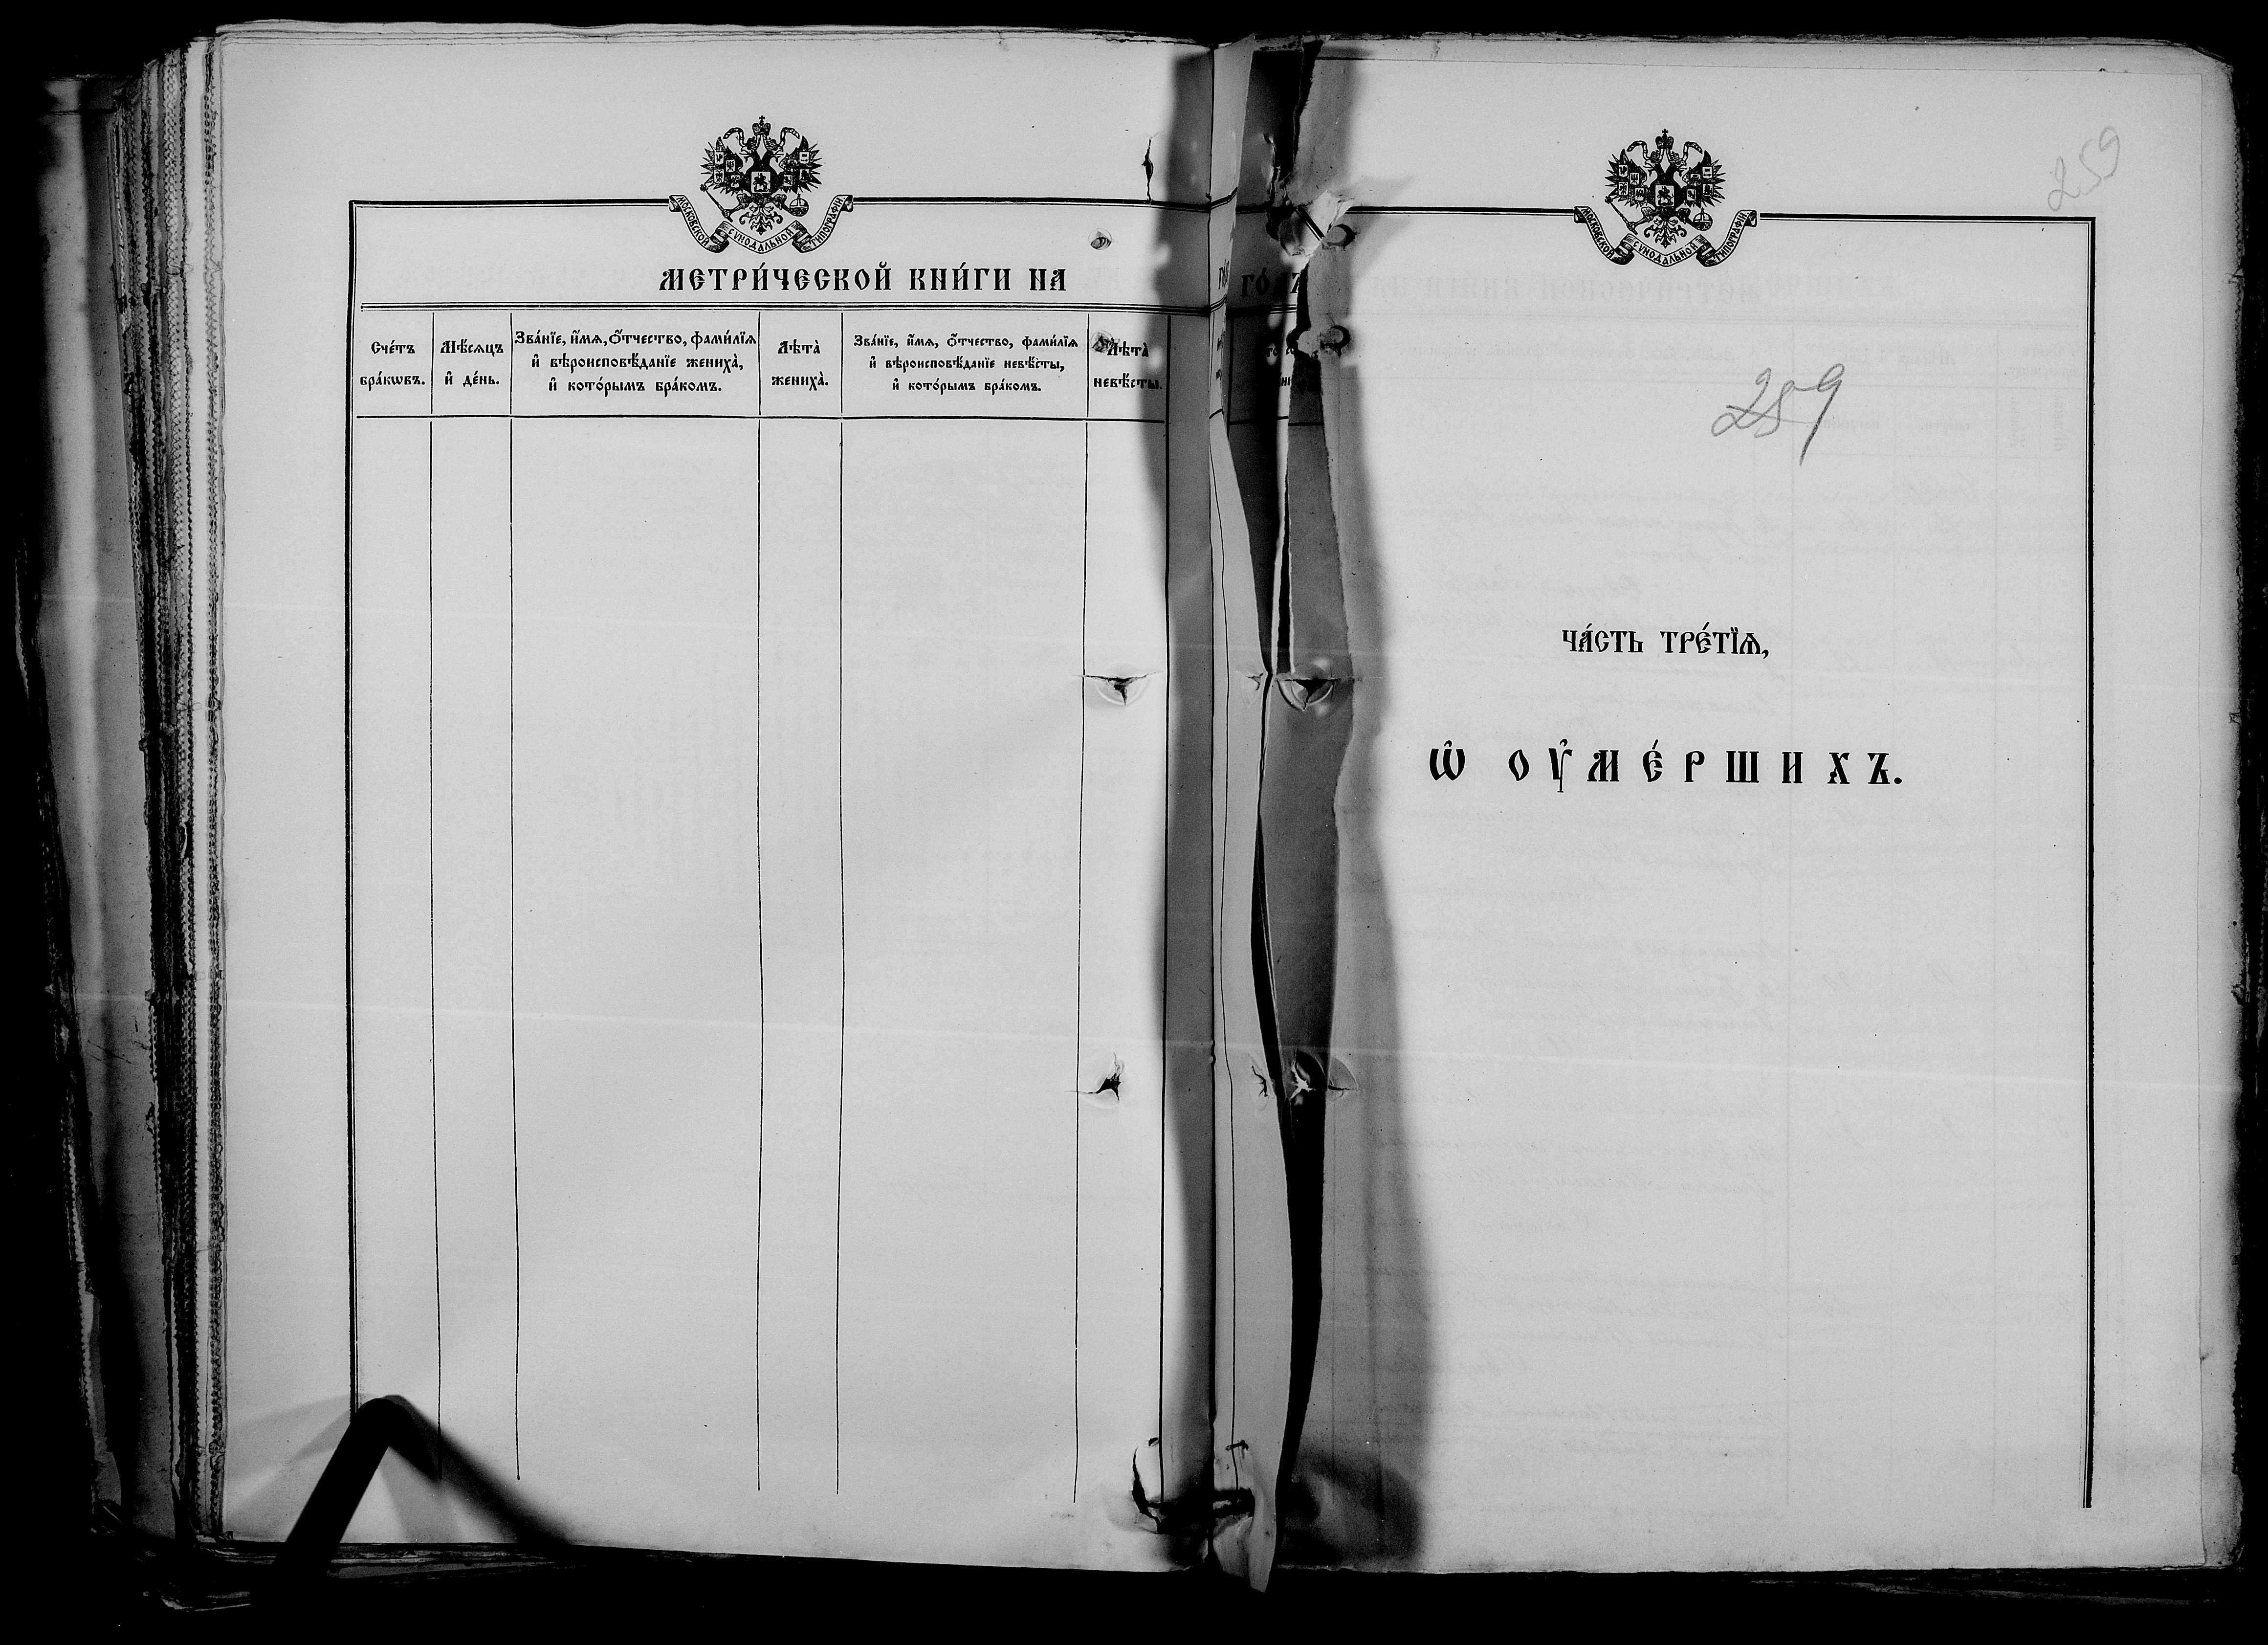 МОСКОВСКОЙ СѴНОДАЛЬНОЙ ТИПОГРАФІИ
МЕТРИ́ЧЕСКОЙ КНИ́ГИ НА
Сче́тъ
бра́кѡвъ.
Мѣ́сяцъ
и҆ де́нь.
Зва́нїе, и҆́мѧ, ѻ҆́тчество, фами́лїѧ
и҆ вѣроисповѣ́данїе жениха̀,
и҆ кото́рымъ бра́комъ.
Лѣта̀
жениха̀.
Зва́нїе, и҆́мѧ, ѻ҆́тчество, фами́лїѧ
и҆ вѣроисповѣ́данїе невѣ́сты,
и҆ кото́рымъ бра́комъ.
Лѣта̀
невѣ́сты.
ГО́ДЪ
МОСКОВСКОЙ СѴНОДАЛЬНОЙ ТИПОГРАФІИ
259
259
ЧА́СТЬ ТРЕ́ТЇѦ,
Ѡ҆ ОУ҆МЕ́РШИХЪ.